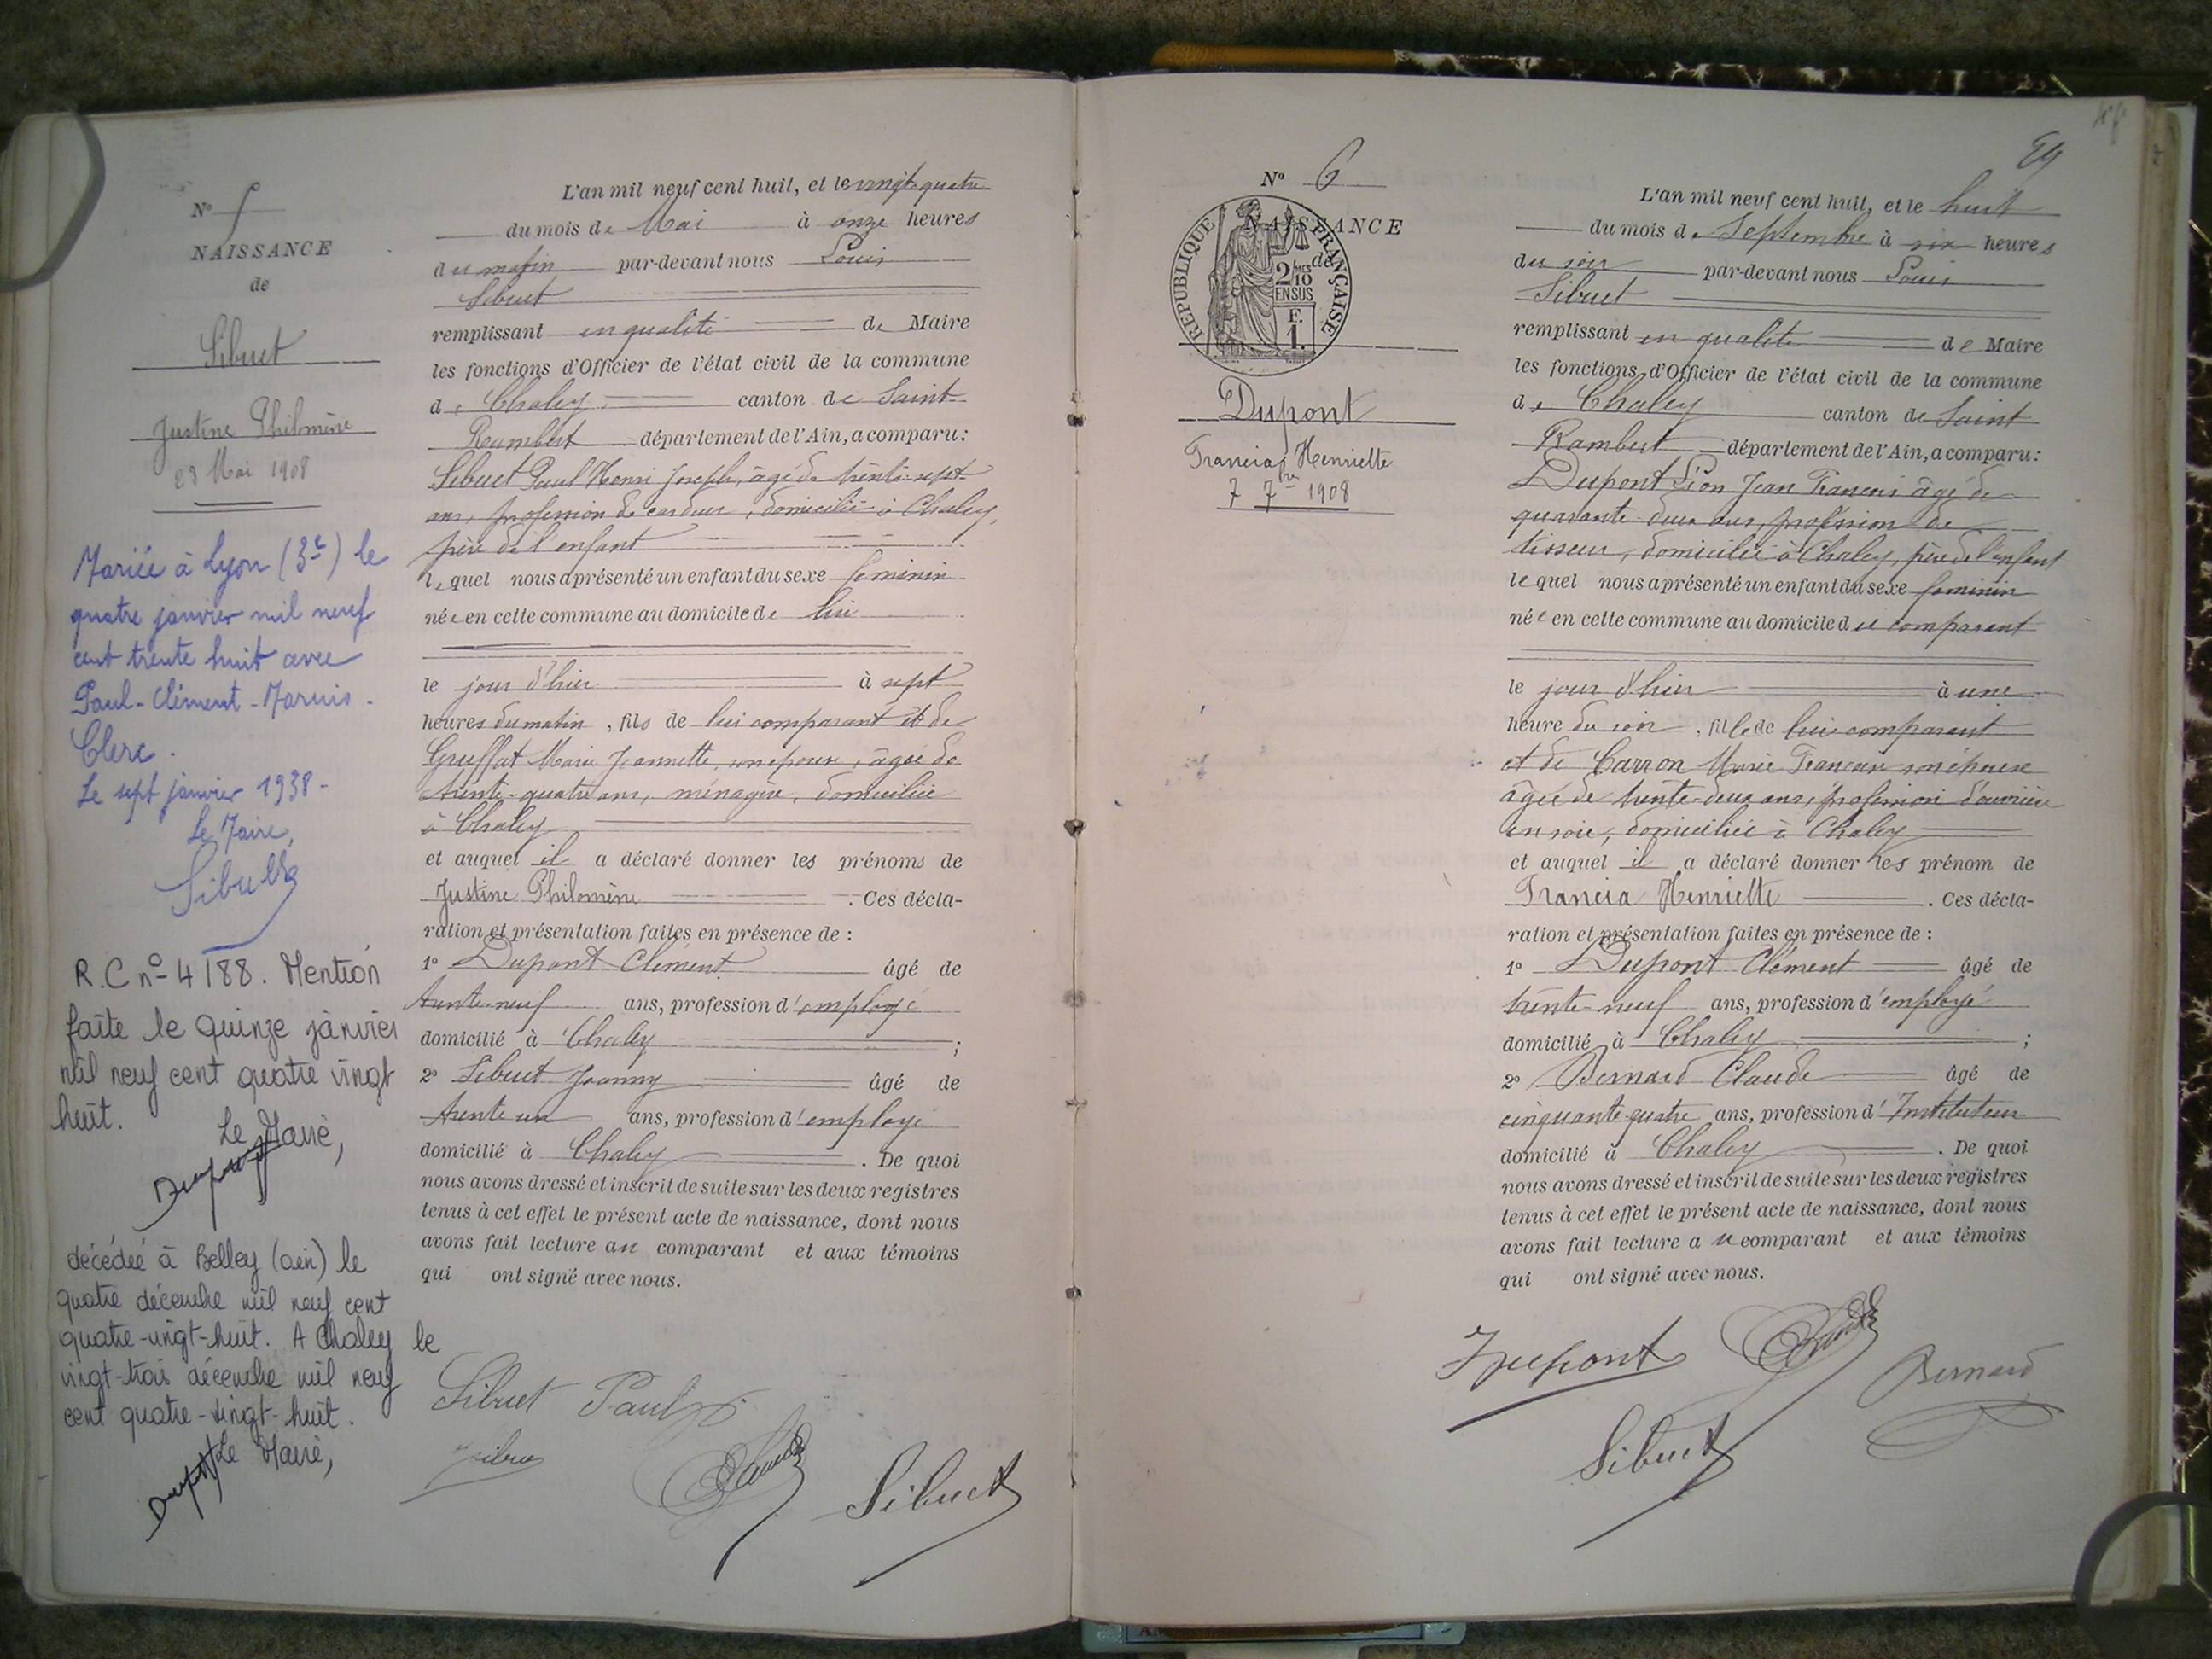 N° 5
NAISSANCE
de
Sibuet
Justine Philomène
23 Mai 1908
Mariée à Lyon (3e) le
quatre janvier mil neuf
cent trente huit avec
Paul-Clément-Marius-
Clerc.
Le sept janvier 1938-
Le Maire,
Sibuet
R.C n° 4188. Mention
faite le quinze janvier
mil neuf cent quatre vingt
huit.
Le Maire,
Dupont
décédée à Belley (ain) le
quatre décembre mil neuf cent
quatre-vingt-huit. A Chaley le
vingt-trois décembre mil neuf
cent quatre-vingt-huit.
Le Maire,
Dupont
L'an mil neuf cent huit, et le vingt-quatre
du mois de Mai à onze heures
du matin par-devant nous Louis
Sibuet
remplissant en qualité de Maire
les fonctions d'Officier de l'état civil de la commune
de Chaley canton de Saint-
Rambert département de l'Ain, a comparu:
Sibuet Paul Henri Joseph, âgé de trente-sept
ans, profession de cardeur, domicilié à Chaley,
père de l'enfant
lequel nous a présenté un enfant du sexe féminin
née en cette commune au domicile de lui
le jour d'hier à sept
heures du matin, fils de lui comparant et de
Gruffat Marie Jeannette, son épouse, âgée de
trente-quatre ans, ménagère, domiciliée
à Chaley
et auquel il a déclaré donner les prénoms de
Justine Philomène. Ces décla-
ration et présentation faites en présence de :
1° Dupont Clément âgé de
trente-neuf ans, profession d'employé
domicilié à Chaley ;
2° Sibuet Joanny âgé de
trente un ans, profession d'employé
domicilié à Chaley. De quoi
nous avons dressé et inscrit de suite sur les deux registres
tenus à cet effet le présent acte de naissance, dont nous
avons fait lecture au comparant et aux témoins
qui ont signé avec nous.
Sibuet Paul
Sibuet
N° 6
NAISSANCE
de
RÉPUBLIQUE FRANÇAISE
2 MES
10
EN SUS
F.
1.
Dupont
Francia Henriette
7 7bre 1908
49
L'an mil neuf cent huit, et le huit
du mois de Septembre à six heures
du soir par-devant nous Louis
Sibuet
remplissant en qualité de Maire
les fonctions d'Officier de l'état civil de la commune
de Chaley canton de Saint
Rambert département de l'Ain, a comparu:
Dupont Léon Jean François âgé de
quarante-deux ans, profession de
tisseur, domicilié à Chaley, père de l'enfant
lequel nous a présenté un enfant du sexe féminin
née en cette commune au domicile du comparant
le jour d'hier à une
heure du soir, fille de lui comparant
et de Carron Marie Françoise son épouse
âgée de trente-deux ans, profession d'ouvrière
en soie, domiciliée à Chaley
et auquel il a déclaré donner les prénom de
Francia Henriette. Ces décla-
ration et présentation faites en présence de :
1° Dupont Clément âgé de
trente-neuf ans, profession d'employé
domicilié à Chaley ;
2° Bernard Claude âgé de
cinquante-quatre ans, profession d'Instituteur
domicilié à Chaley. De quoi
nous avons dressé et inscrit de suite sur les deux registres
tenus à cet effet le présent acte de naissance, dont nous
avons fait lecture au comparant et aux témoins
qui ont signé avec nous.
Dupont
Bernard
Sibuet